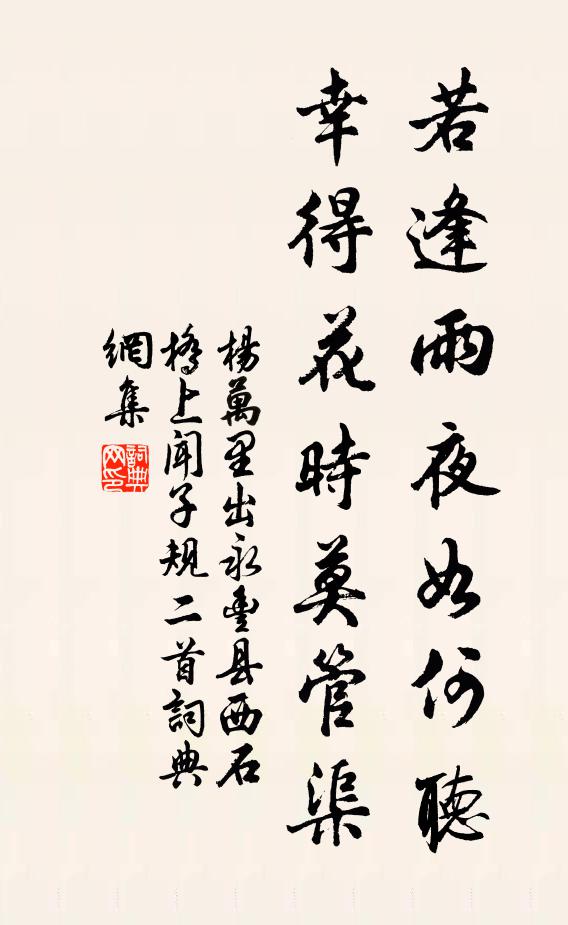 若逢雨夜如何聽
幸得花時莫管渠
楊萬里出永豐县西石
橋上聞子規二首詞典
網集
詞典
网印